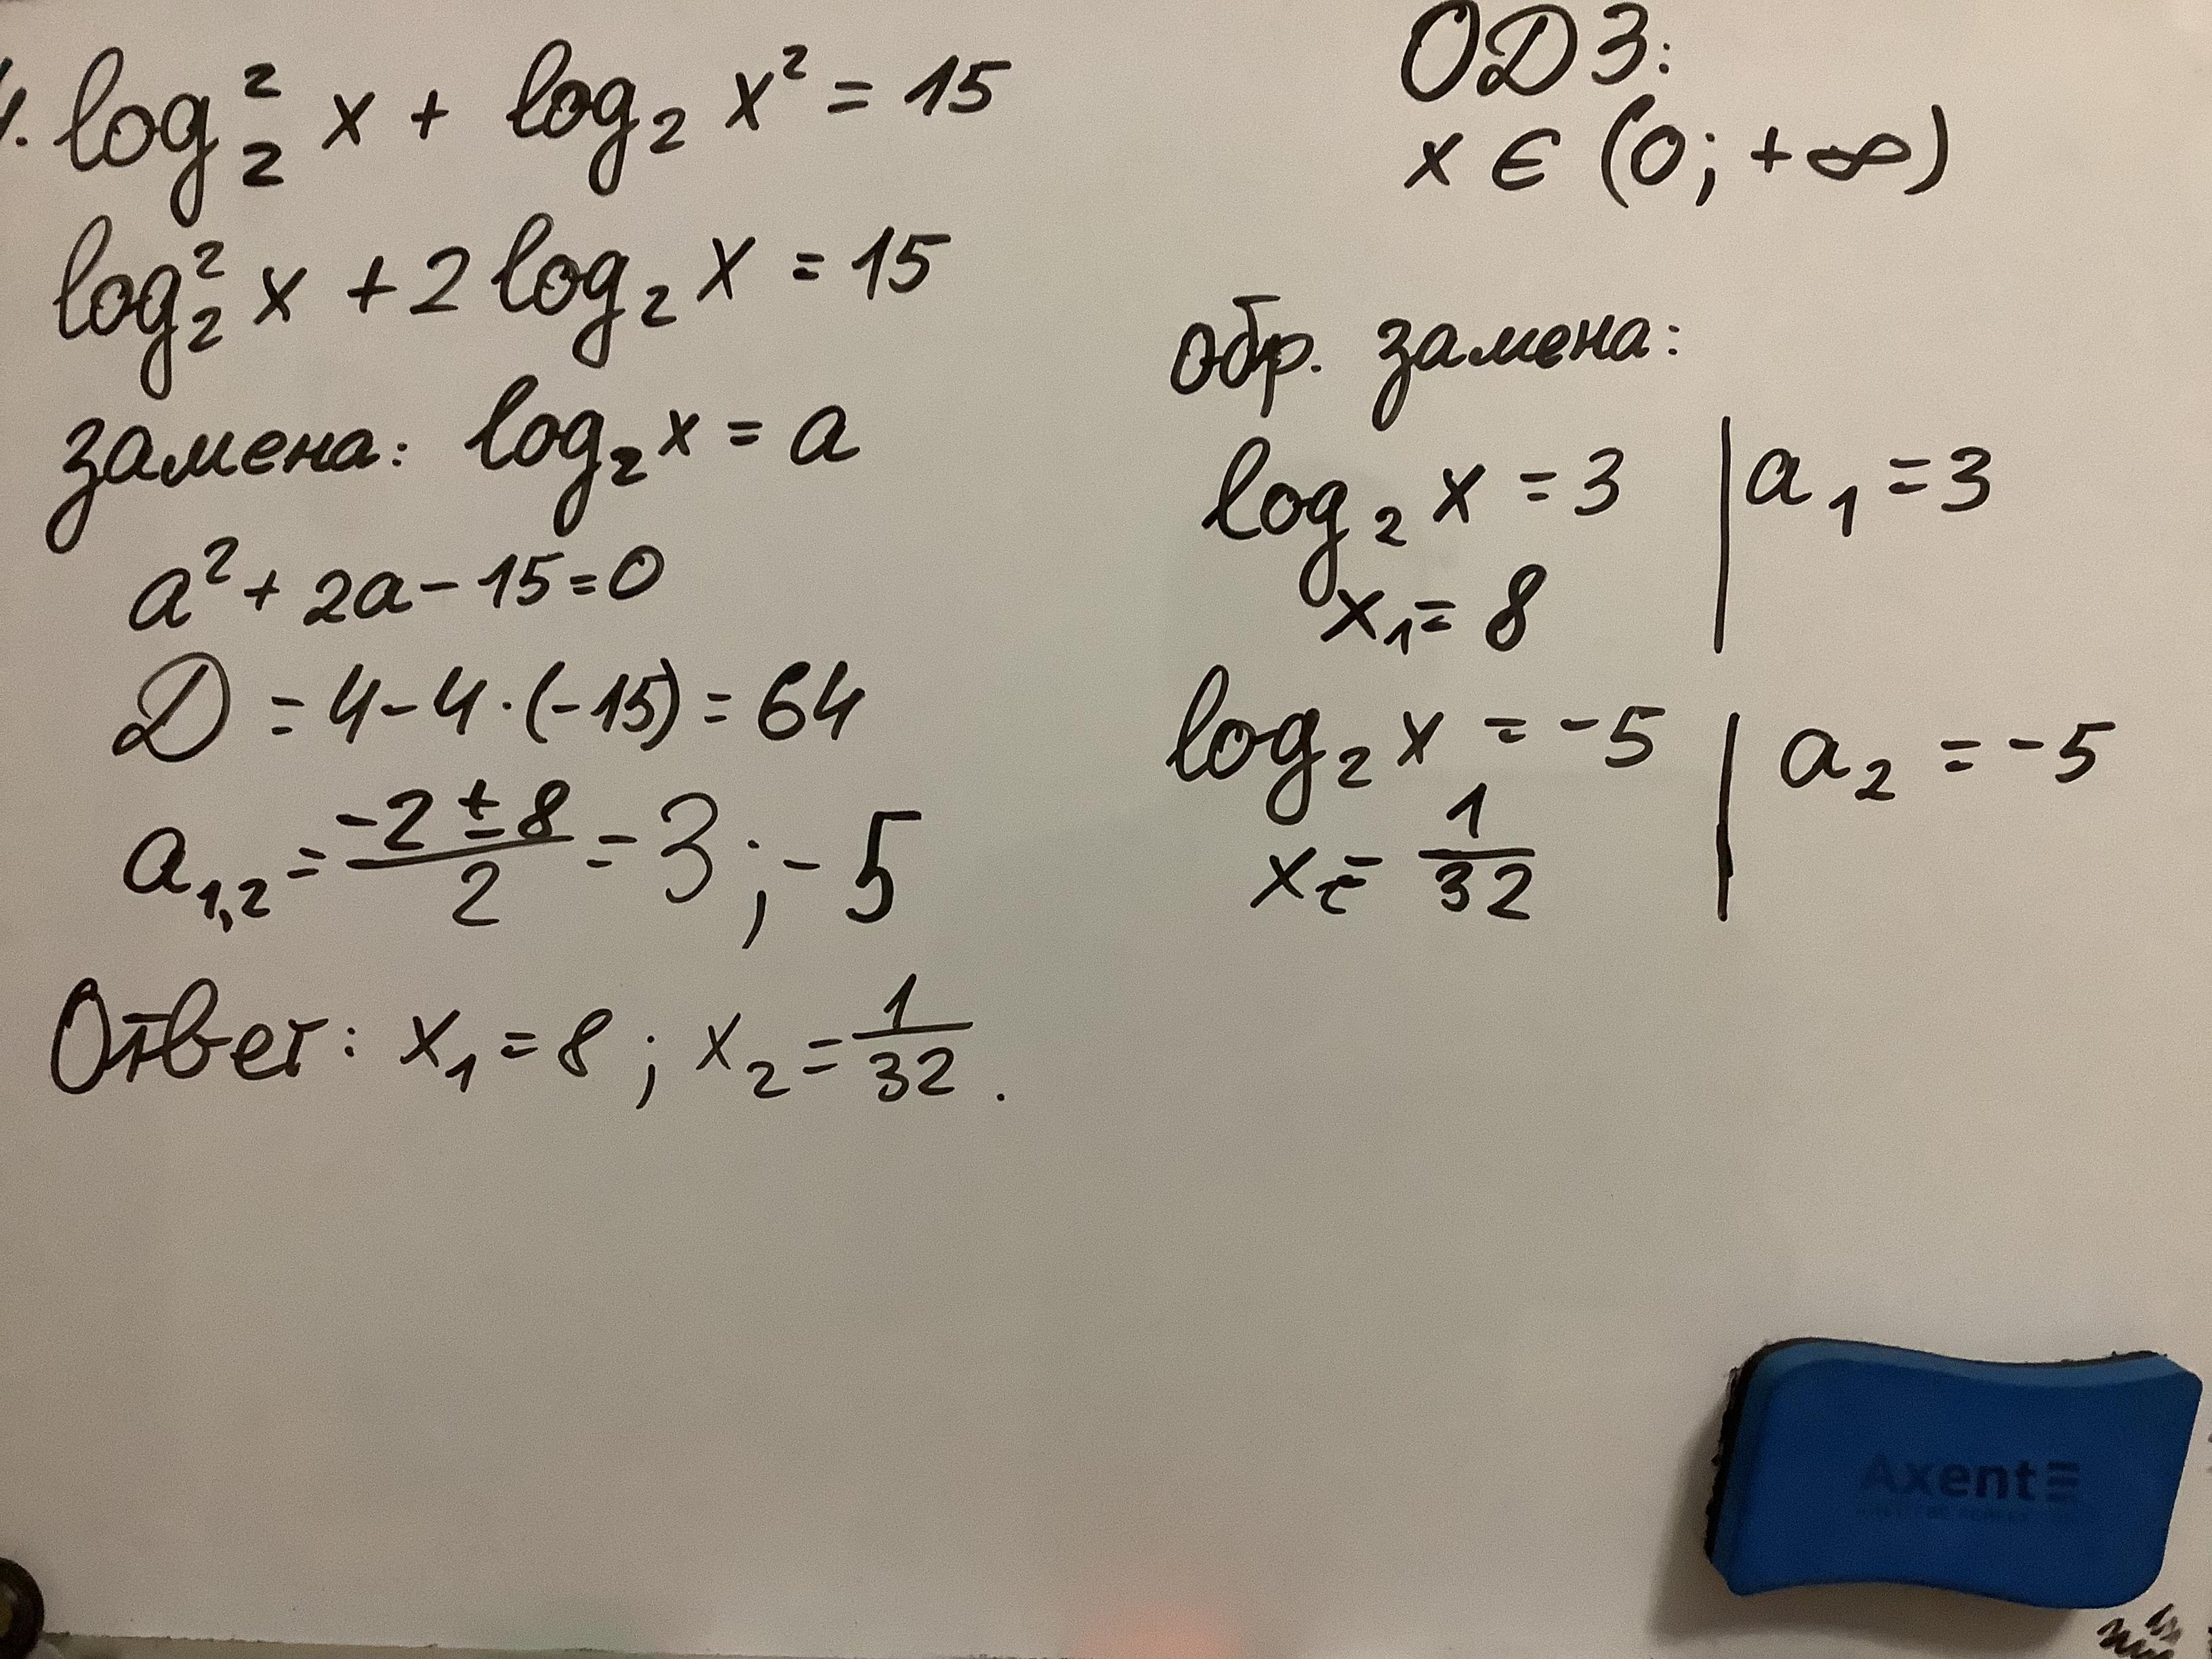 log₂² x + log₂ x² = 15
log₂² x + 2 log₂ x = 15
замена: log₂ x = a
a² + 2a - 15 = 0
D = 4 - 4 · (-15) = 64
a₁,₂ = (-2 ± 8)/2 = 3 ; -5
Ответ: x₁ = 8 ; x₂ = 1/32 .
ОДЗ:
x ∈ (0; +∞)
обр. замена:
log₂ x = 3 | a₁ = 3
x₁ = 8
log₂ x = -5 | a₂ = -5
x = 1/32
Axent